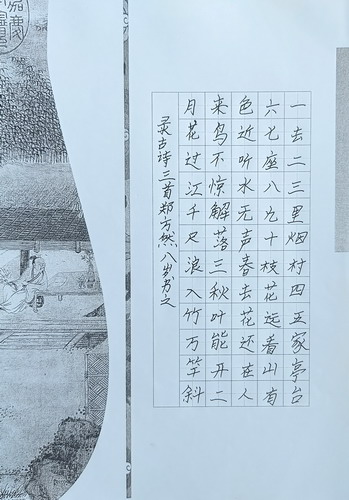 一去二三里烟村四五家亭台
六七座八九十枝花远看山有
色近听水无声春去花还在人
来鸟不惊解落三秋叶能开二
月花过江千尺浪入竹万竿斜
录古诗三首郑方然八岁书之